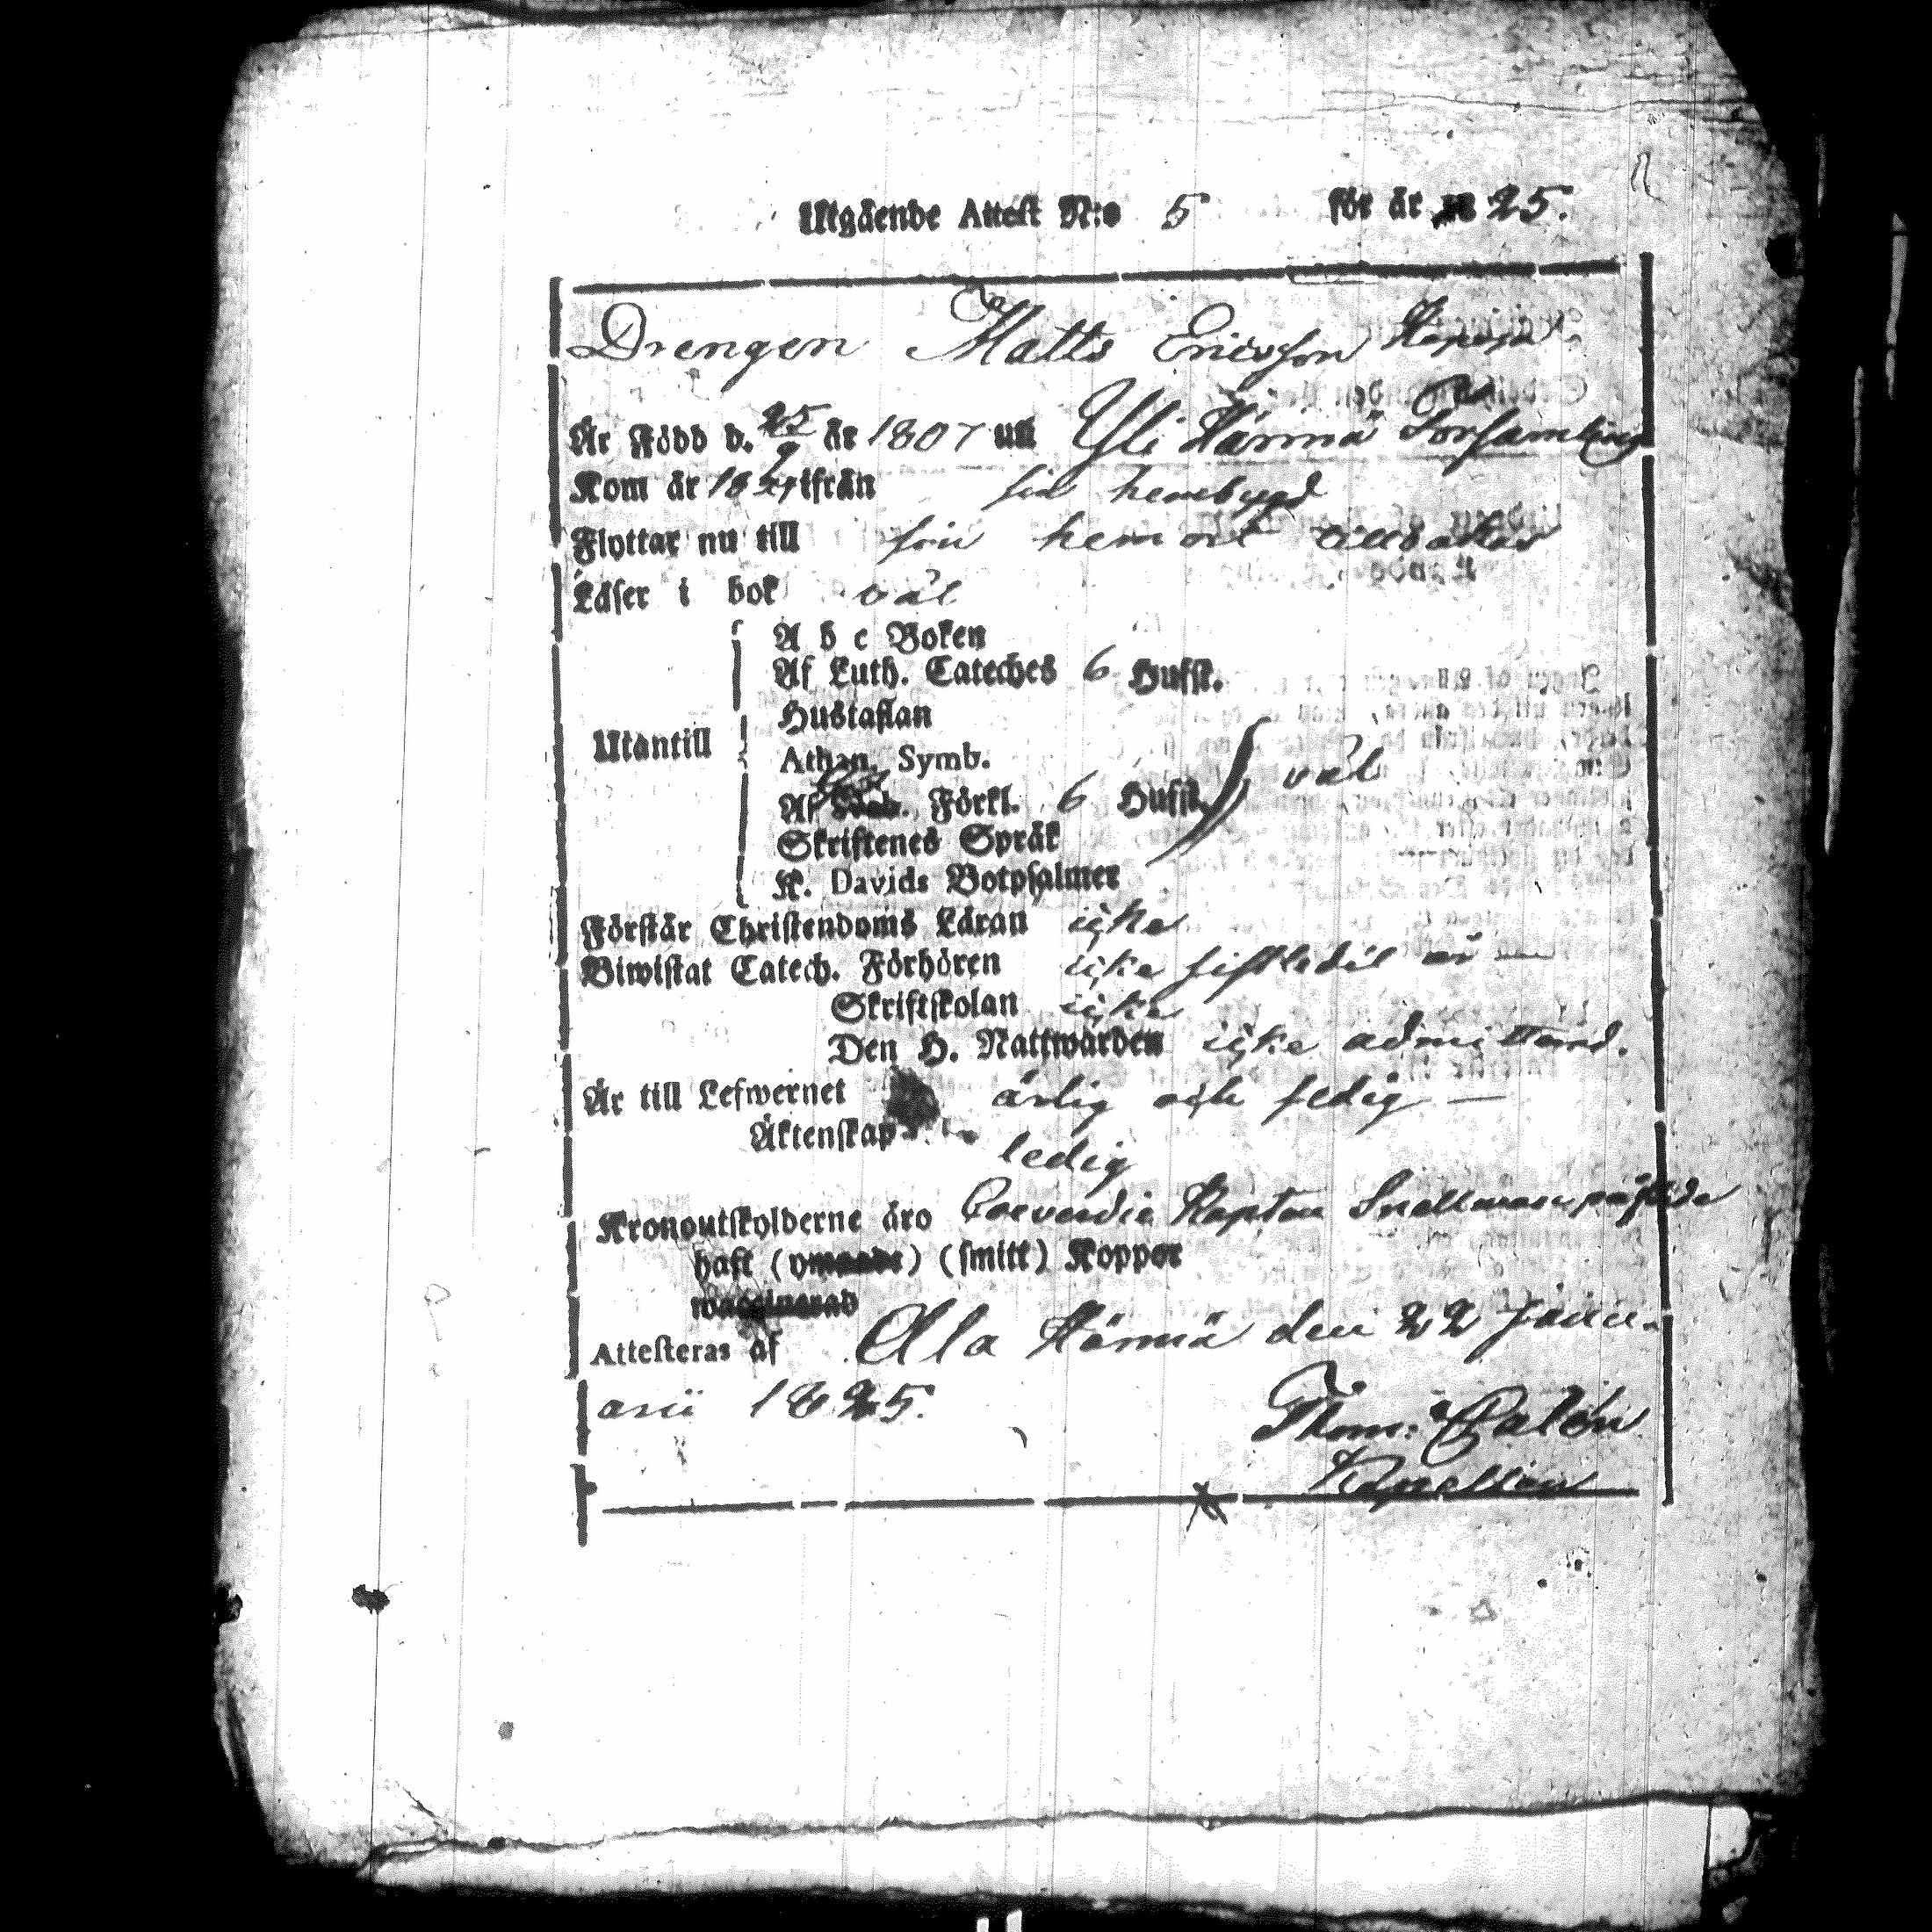 Utgående Attest N:o 5 för år 25.
Drengen Matts Ericsson
Är Född d. 25/9 år 1807 uti Yli Härmä Församling
Kom år 1824 ifrån sin hembygd
Flyttar nu till sin hemort tillbakar
Läser i bok väl
A b c Boken
Af Luth. Cateches 6 Hufst.
Hustaflan
Utantill
Athan. Symb.
väl
Af Förkl. 6 Hufst.
Skriftenes Språk
K. Davids Botpsalmer
Förstår Christendoms Läran icke
Biwistat Catech. Förhören icke sistledit år
Skriftskolan icke
Den H. Nattwarden icke admitterad.
Är till Lefwernet ärlig och sedig —
Äktenskap ledig
Kronoutskylderne äro Snellman påförde
haft (smitt) Koppor
Attesteras af Ala Härmä den 22 Janu-
arii 1825.
Thom:
Kapellan